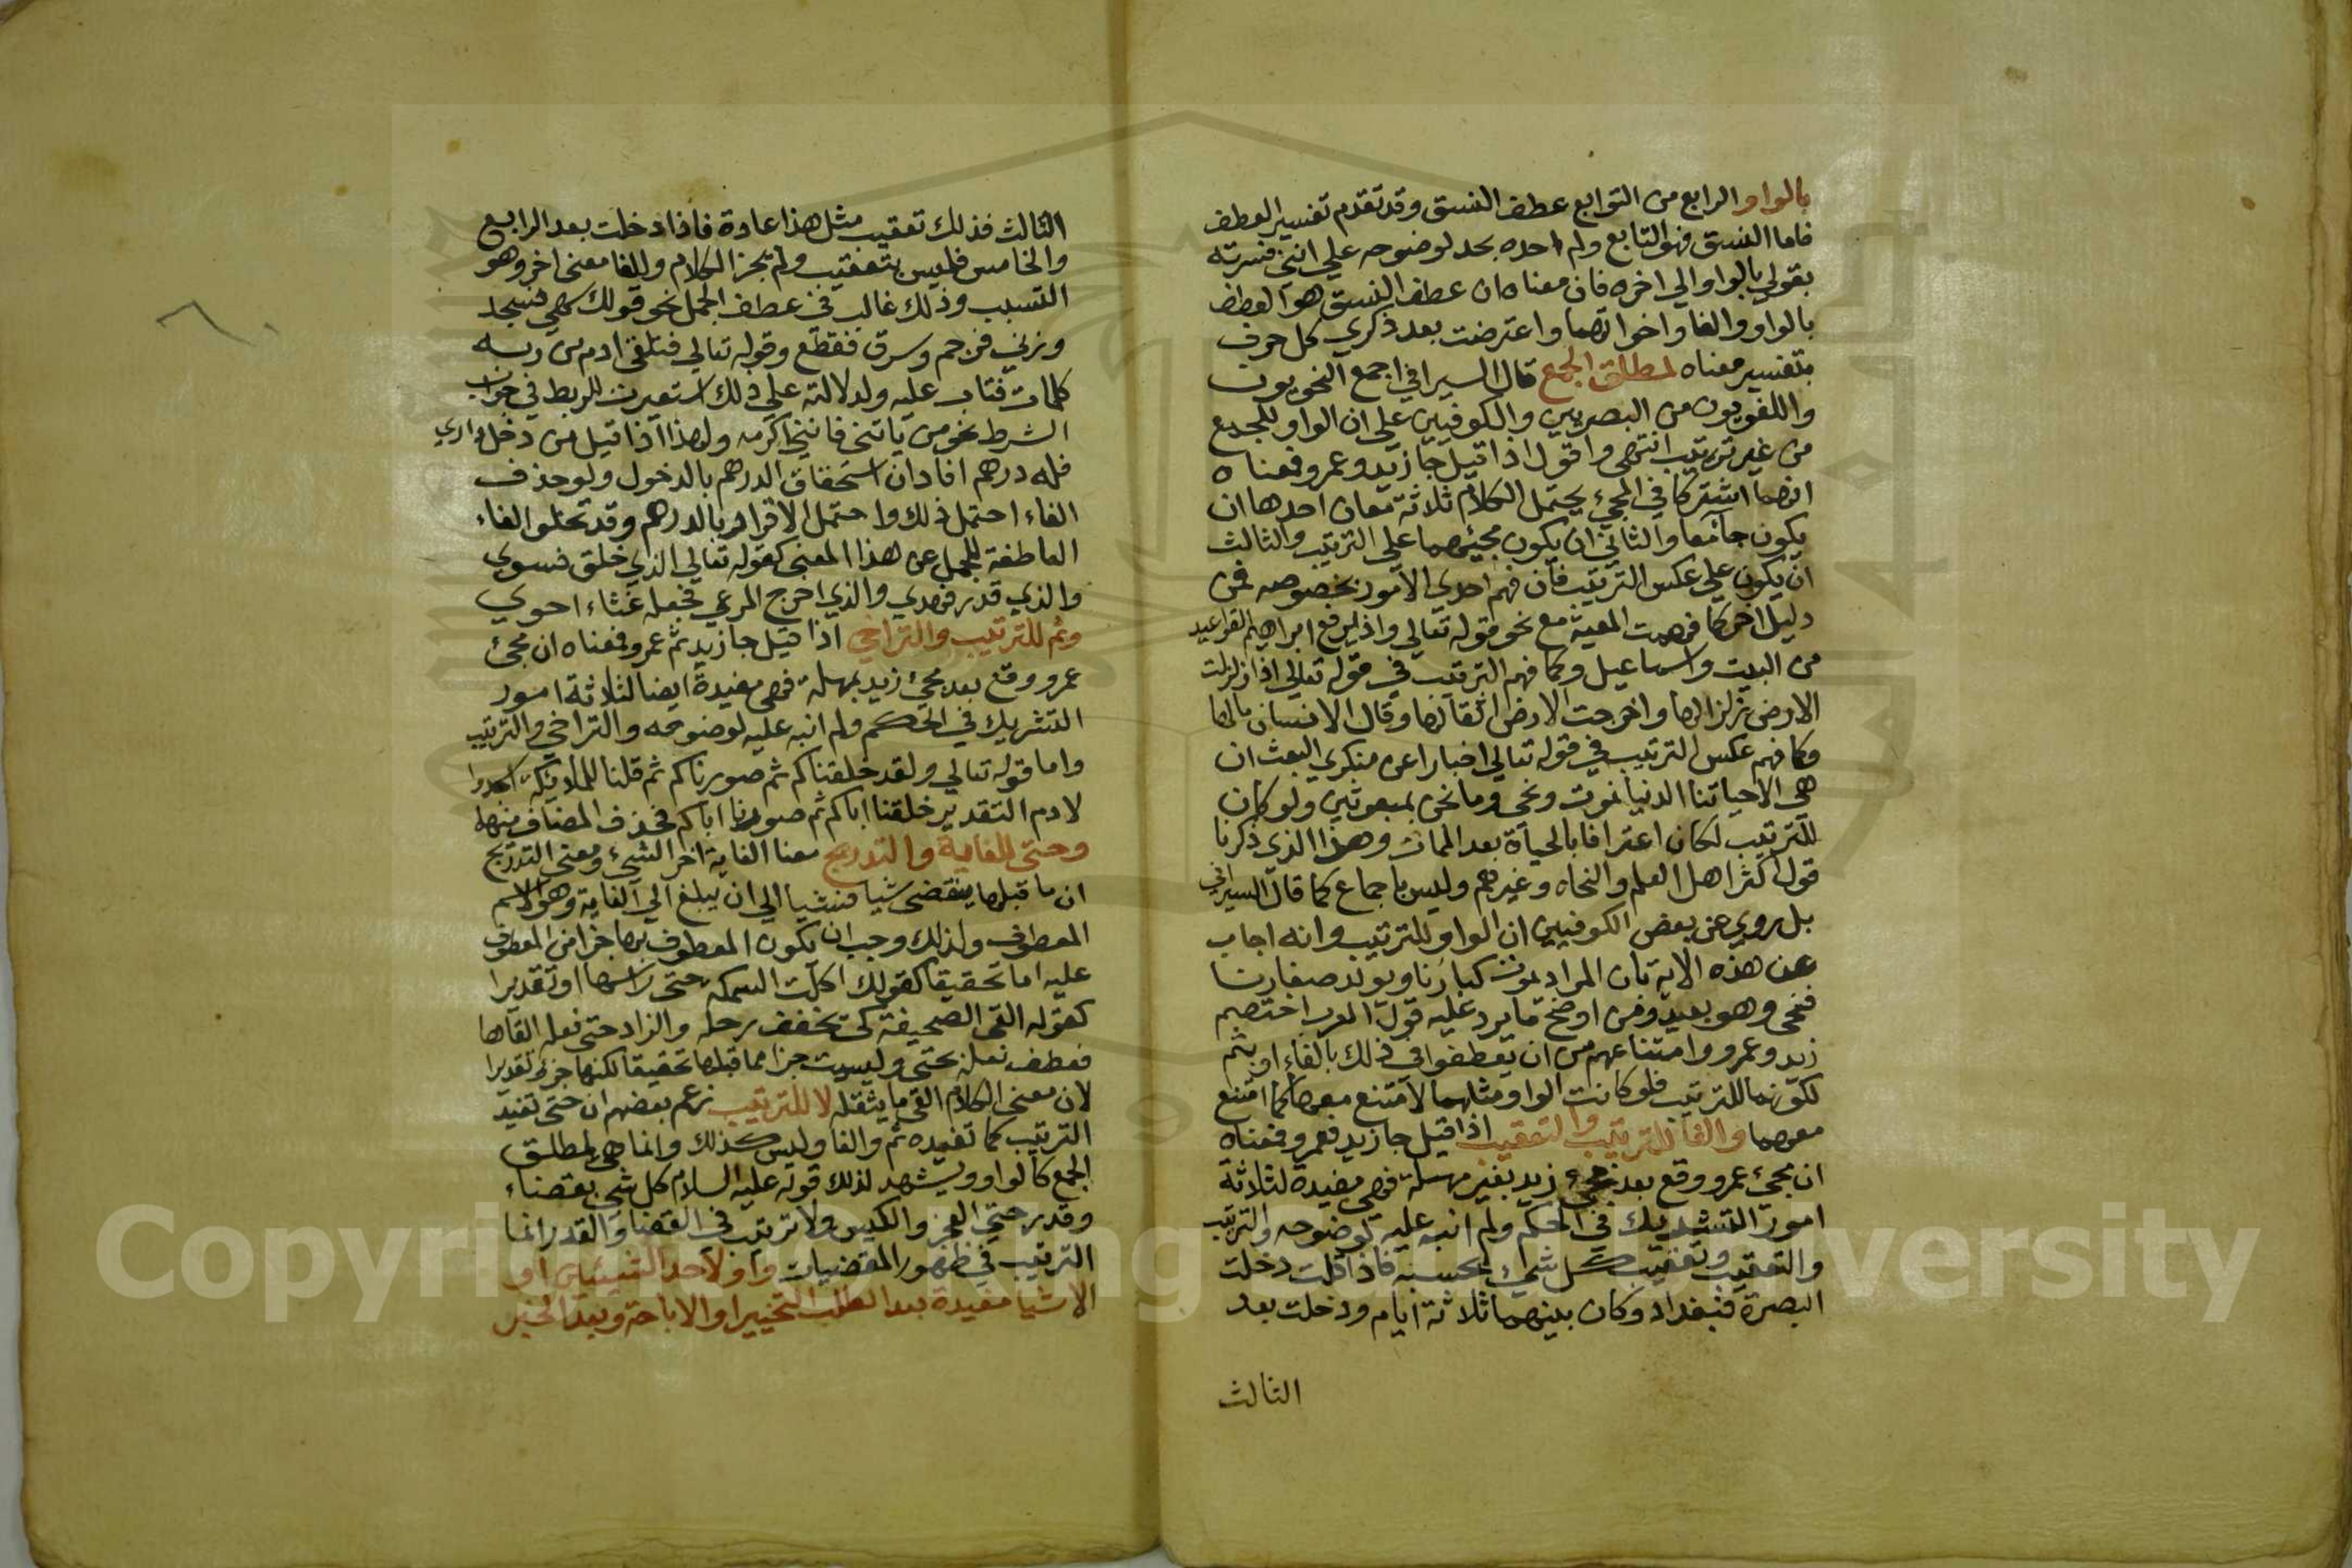 بالواو الرابع من التوابع عطف النسق وقد تقدم تفسير العطف
فاما النسق فهو التابع ولم احده بحد لوضوحه علي انني فسرته
بقولي بالواو الي اخره فان معناه ان عطف النسق هو العطف
بالواو والفا واخواتهما واعترضت بعد ذكري كل حرف
بتفسير معناه لمطلق الجمع قال السيرافي اجمع النحويون
واللغويون من البصريين والكوفيين علي ان الواو للجمع
من غير ترتيب انتهي واقول اذا قيل جا زيد وعمرو فمعناه
انهما اشتركا في المجيء يحتمل الكلام ثلاثة معان احدها ان
يكون جامعا والثاني ان يكون مجيئهما علي الترتيب والثالث
ان يكون علي عكس الترتيب فان فهم احدي الامور بخصوصه فمن
دليل اخر كما فهمت المعية مع نحو قوله تعالي واذ يرفع ابراهيم القواعيد
من البيت واسماعيل وكما فهم الترتيب في قوله تعالي اذا زلزلت
الارض زلزالها واخرجت الارض اثقالها وقال الانسان مالها
وكما فهم عكس الترتيب في قوله تعالي اخبارا عن منكري البعث ان
هي الا حياتنا الدنيا نموت ونحي وما نحن بمبعوثين ولو كان
للترتيب لكان اعترافا بالحياة بعد الممات وهذا الذي ذكرنا
قول اكثر اهل العلم والنحاه وغيرهم وليس باجماع كما قال السيرافي
بل روي عن بعض الكوفيين ان الواو للترتيب وانه اجاب
عن هذه الاية بان المراد نموت كبارنا ويولد صغارنا
فنحي وهو بعيد ومن اوضح ما يرد عليه قول العرب اختصم
زيد وعمرو وامتناعهم من ان يعطفوا في ذلك بالفاء او بثم
لكونهما للترتيب فلو كانت الواو مثلهما لامتنع معها كما امتنع
معهما والفا للترتيب والتعقيب اذا قيل جا زيد فعمرو فمعناه
ان مجيء عمرو وقع بعد مجيء زيد بغير مهلة فهي مفيدة لثلاثة
امور التشريك في الحكم ولم انبه عليه لوضوحه والترتيب
والتعقيب وتعقيب كل شيء بحسبه فاذا قلت دخلت
البصرة فبغداد وكان بينهما ثلاثة ايام ودخلت بعد
الثالث
الثالث فذلك تعقيب مثل هذا عادة فاذا دخلت بعد الرابع
والخامس فليس بتعقيب ولم يجز الكلام وللفا معنى اخر وهو
التسبب وذلك غالب في عطف الجمل نحو قولك سهي فسجد
وزني فرجم وسرق فقطع وقوله تعالي فتلقى ادم من ربه
كلمات فتاب عليه ولدلالته علي ذلك استعيرت للربط في جواب
الشرط نحو من ياتني فانني اكرمه ولهذا اذا قيل من دخل داري
فله درهم افاد ان استحقاق الدرهم بالدخول ولو حذف
الفاء احتمل ذلك واحتمل الاقرار بالدرهم وقد تخلوا الفاء
العاطفة للجمل عن هذا المعنى كقوله تعالي الذي خلق فسوي
والذي قدر فهدي والذي اخرج المرعي فجعله غثاء احوي
وثم للترتيب والتراخي اذا قيل جا زيد ثم عمرو فمعناه ان مجئ
عمرو وقع بعد مجئ زيد بمهلة فهي مفيدة ايضا لثلاثة امور
التشريك في الحكم ولم انبه عليه لوضوحه والتراخي والترتيب
واما قوله تعالي ولقد خلقناكم ثم صورناكم ثم قلنا للملايكة اسجدوا
لادم التقدير خلقنا اباكم ثم صورنا اباكم فحذف المضاف منهما
وحتى للغاية والتدريج معنا الغاية اخر الشيء ومعنى التدريج
ان ما قبلها ينقضي شيا فشيا الي ان يبلغ الي الغاية وهو الاسم
المعطوف ولذلك وجب ان يكون المعطوف بها جزا من المعطوف
عليه اما تحقيقا كقولك اكلت السمكة حتى راسها او تقديرا
كقوله القى الصحيفة كي يخفف رحله والزاد حتى نعله القاها
فعطف نعله بحتى وليست جزا مما قبلها تحقيقا لكنها جزء تقديرا
لان معنى الكلام القى ما يثقله لا للترتيب زعم بعضهم ان حتى تفيد
الترتيب كما تفيده ثم والفا وليس كذلك وانما هي لمطلق
الجمع كالواو ويشهد لذلك قوله عليه السلام كل شي بقضاء
وقدر حتي العجز والكيس ولا ترتيب في القضا والقدر انما
الترتيب في ظهور المقضيات واو لاحد الشيئين او
الاشيا مفيدة بعد الطلب التخيير او الاباحة وبعد الخبر